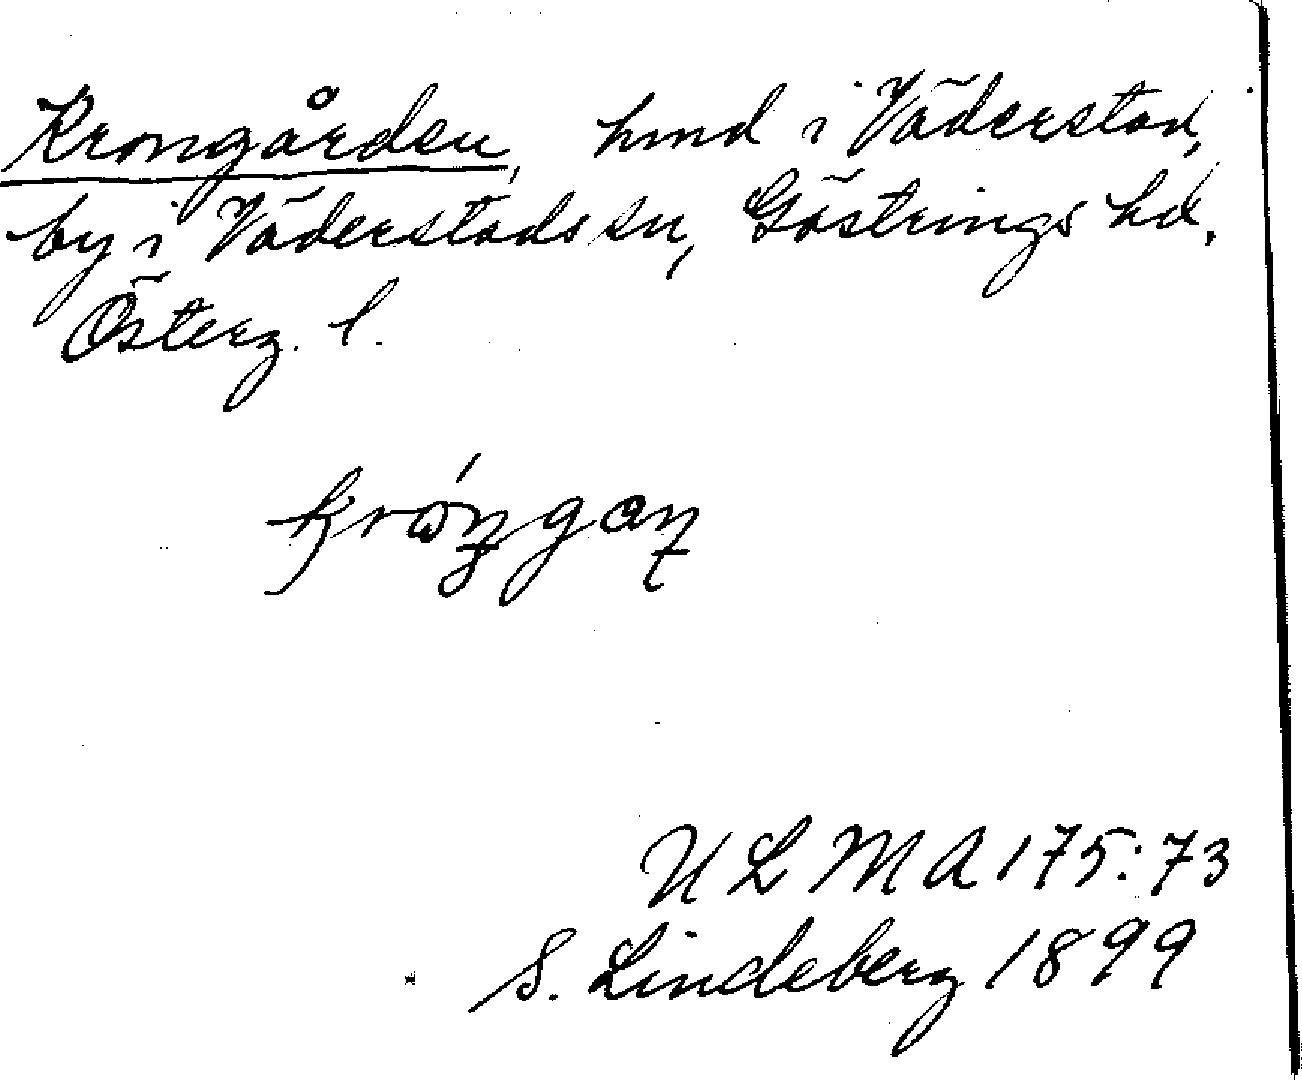 Krongården, hmd i Väderstad,
by i Väderstads sn, Göstrings hd,
Österg. l.
ULMA 175:73
S. Lindeberg 1899